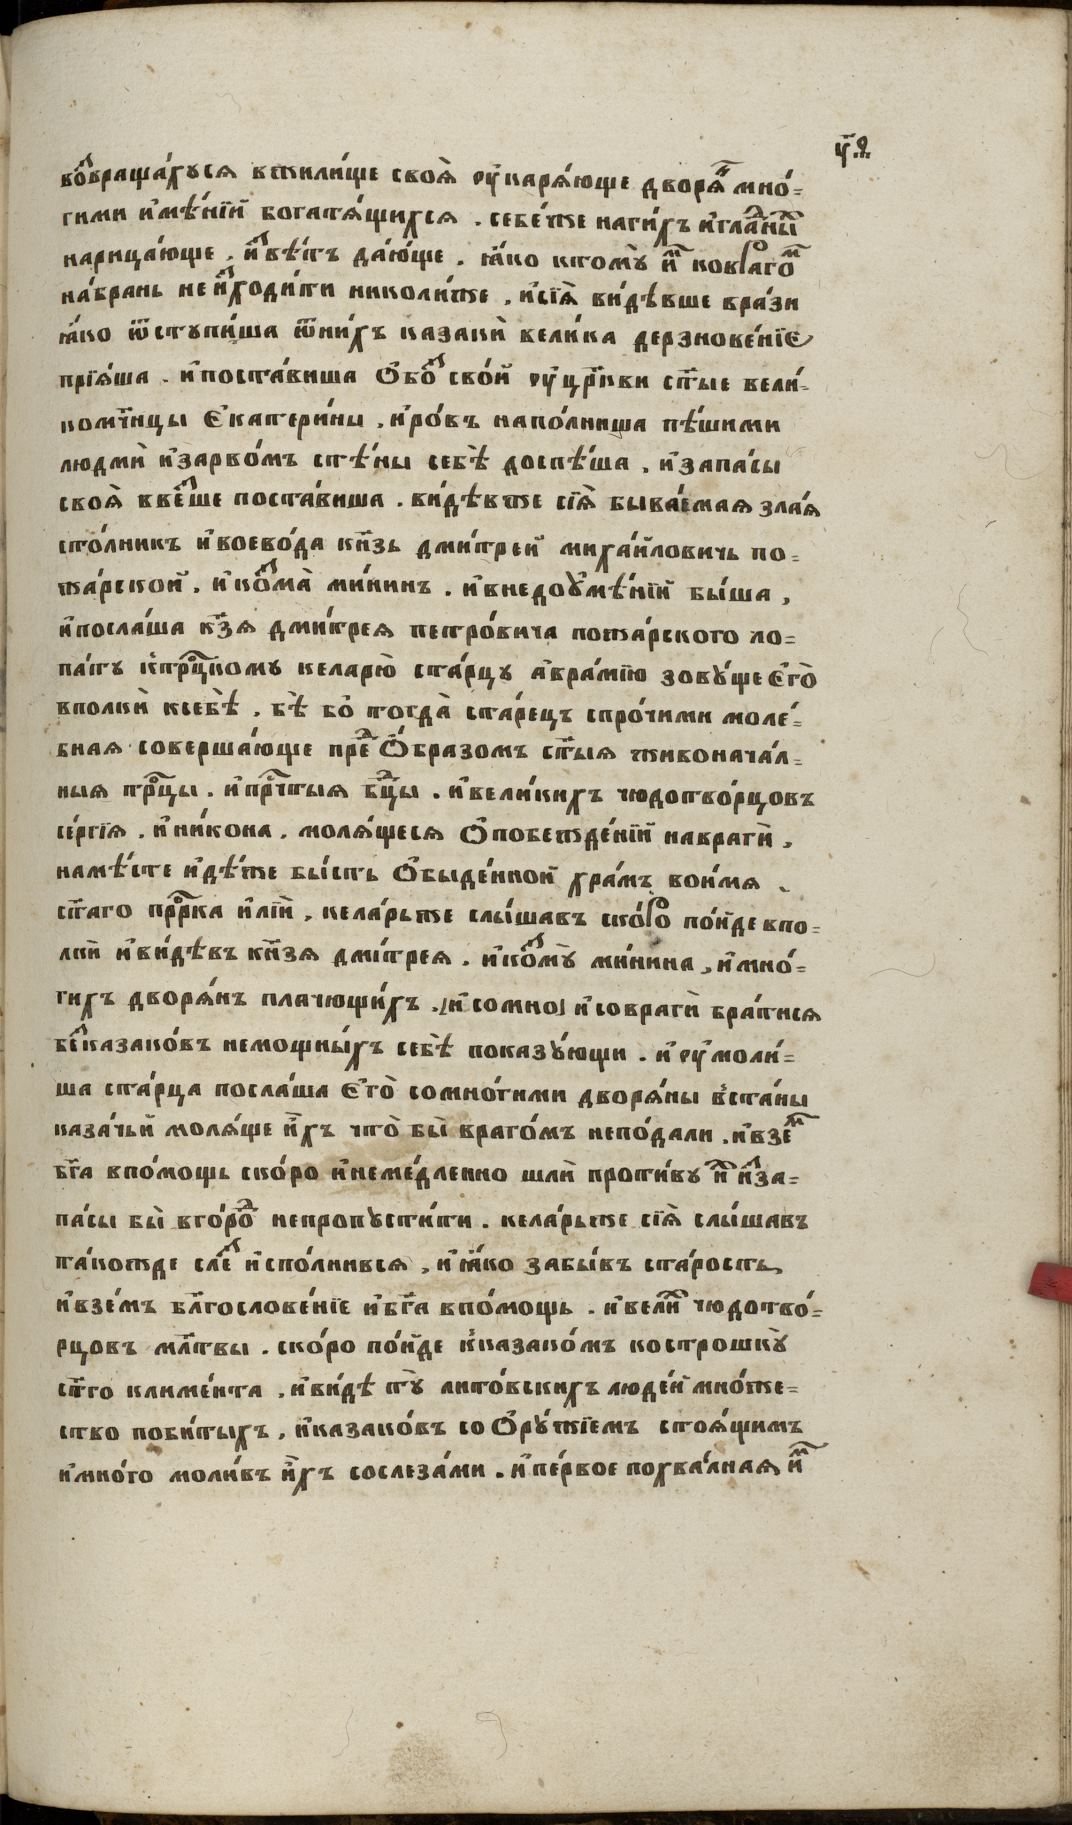 ч҃.
воⷥвраща́хуся вжили́ще своѧ̀ ᲂу҆каря́юще дворяⷩ҇ мно́=
гими и҆мѣ́нїи богатя́щихся . себе́же наги́хъ и҆гла́ⷣныⷯ
нарица́юще . иⷥвѣ́тъ даю́ще . ꙗ҆́ко ктомꙋ̀ иⷨ ковраго́ⷨ
на́брань неиⷥходи́ти николи́же . и҆сїѧ̀ ви́дѣвше врази
ꙗ҆́ко ѿступи́ша ѿни́хъ казакѝ вели́ка дерзнове́нїе
прїя́ша . и҆поста́виша Ѻ҆боⷥ сво́й ᲂу҆цр҃кви ст҃ы́е вели́=
комч҃ницы Є҆катери́ны . и҆ро́въ напо́лниша пѣ́шими
людмѝ и҆зарво́мъ стѣ́ны себѣ̀ доспѣ́ша . и҆запа́сы
своѧ̀ ввеⷭ҇ше поста́виша . ви́дѣвже сїѧ̀ быва́емая зла́я
сто́лникъ и҆воево́да кн҃зь дми́трей миха́йловичь по=
жа́рской . и҆коⷥма̀ ми́нинъ . и҆внедоꙋмѣ́нїи бы́ша ,
и҆посла́ша кн҃зя дми́трея петро́вича пожа́рского ло=
па́ту к̾трⷪ҇ицкому келарю̀ ста́рцу а҆вра́мїю зовꙋ́ще є҆гѡ̀
вполкѝ ксебѣ̀ . бѣ̀ бо̀ тогда̀ ста́рецъ спро́чими моле́=
бная соверша́юще преⷣ Ѻ҆́бразомъ ст҃ы́я живонача́л=
ныя трⷪ҇цы . и҆прⷱ҇тыя бцⷣы . и҆вели́кихъ чюдотво́рцовъ
се́ргїя . и҆ни́кона . моля́щеся Ѻ҆побежде́нїи навраги̾ ,
намѣ́сте и҆дѣ́же бы́сть Ѻ҆быде́нной хра́мъ воимя
ст҃а́го прⷪ҇рка и҆лїи . кела́рьже слы́шавъ ско́ро по́йде впо=
лкѝ и҆ви́дѣвъ кн҃зя дми́трея . и҆коⷥмꙋ̀ ми́нина , и҆мно́=
гихъ дворя́нъ плачющи́хъ . [и҆сомно] и҆совраги̾ бра́тися
беⷥказако́въ немощны́хъ себѣ̀ показꙋ́ющи . и҆ ᲂу҆моли́=
ша ста́рца посла́ша є҆го̀ сомно́гими дворя́ны в̾ста́ны
каза́чьи моля́ще и҆́хъ что̀ бы̀ враго́мъ непо́дали . и҆взеⷨ
бг҃а впо́мощь ско́ро и҆неме́дленно шлѝ проти́ву иⷯ и҆за=
па́сы бы̀ вго́роⷣ непропꙋсти́ти . кела́рьже сїѧ̀ слы́шавъ
та́кожде слеⷥ и҆спо́лнився , и҆ꙗ҆́ко забы́въ ста́рость
и҆взе́мъ бл҃гослове́нїе и҆бг҃а впо́мощь . и҆вели́ⷦ чюдотво́=
рцовъ мл҃твы . ско́ро по́йде к̾казако́мъ ко острошкꙋ̀
ст҃го климе́нта . и҆ви́дѣ тꙋ̀ лито́вскихъ люде́й мно́же=
ство поби́тыхъ , и҆казако́въ со Ѻ҆рꙋ́жїемъ стоя́щимъ
и҆мно́го моли́въ и҆́хъ сослеза́ми . и҆пе́рвое похва́лная иⷨ